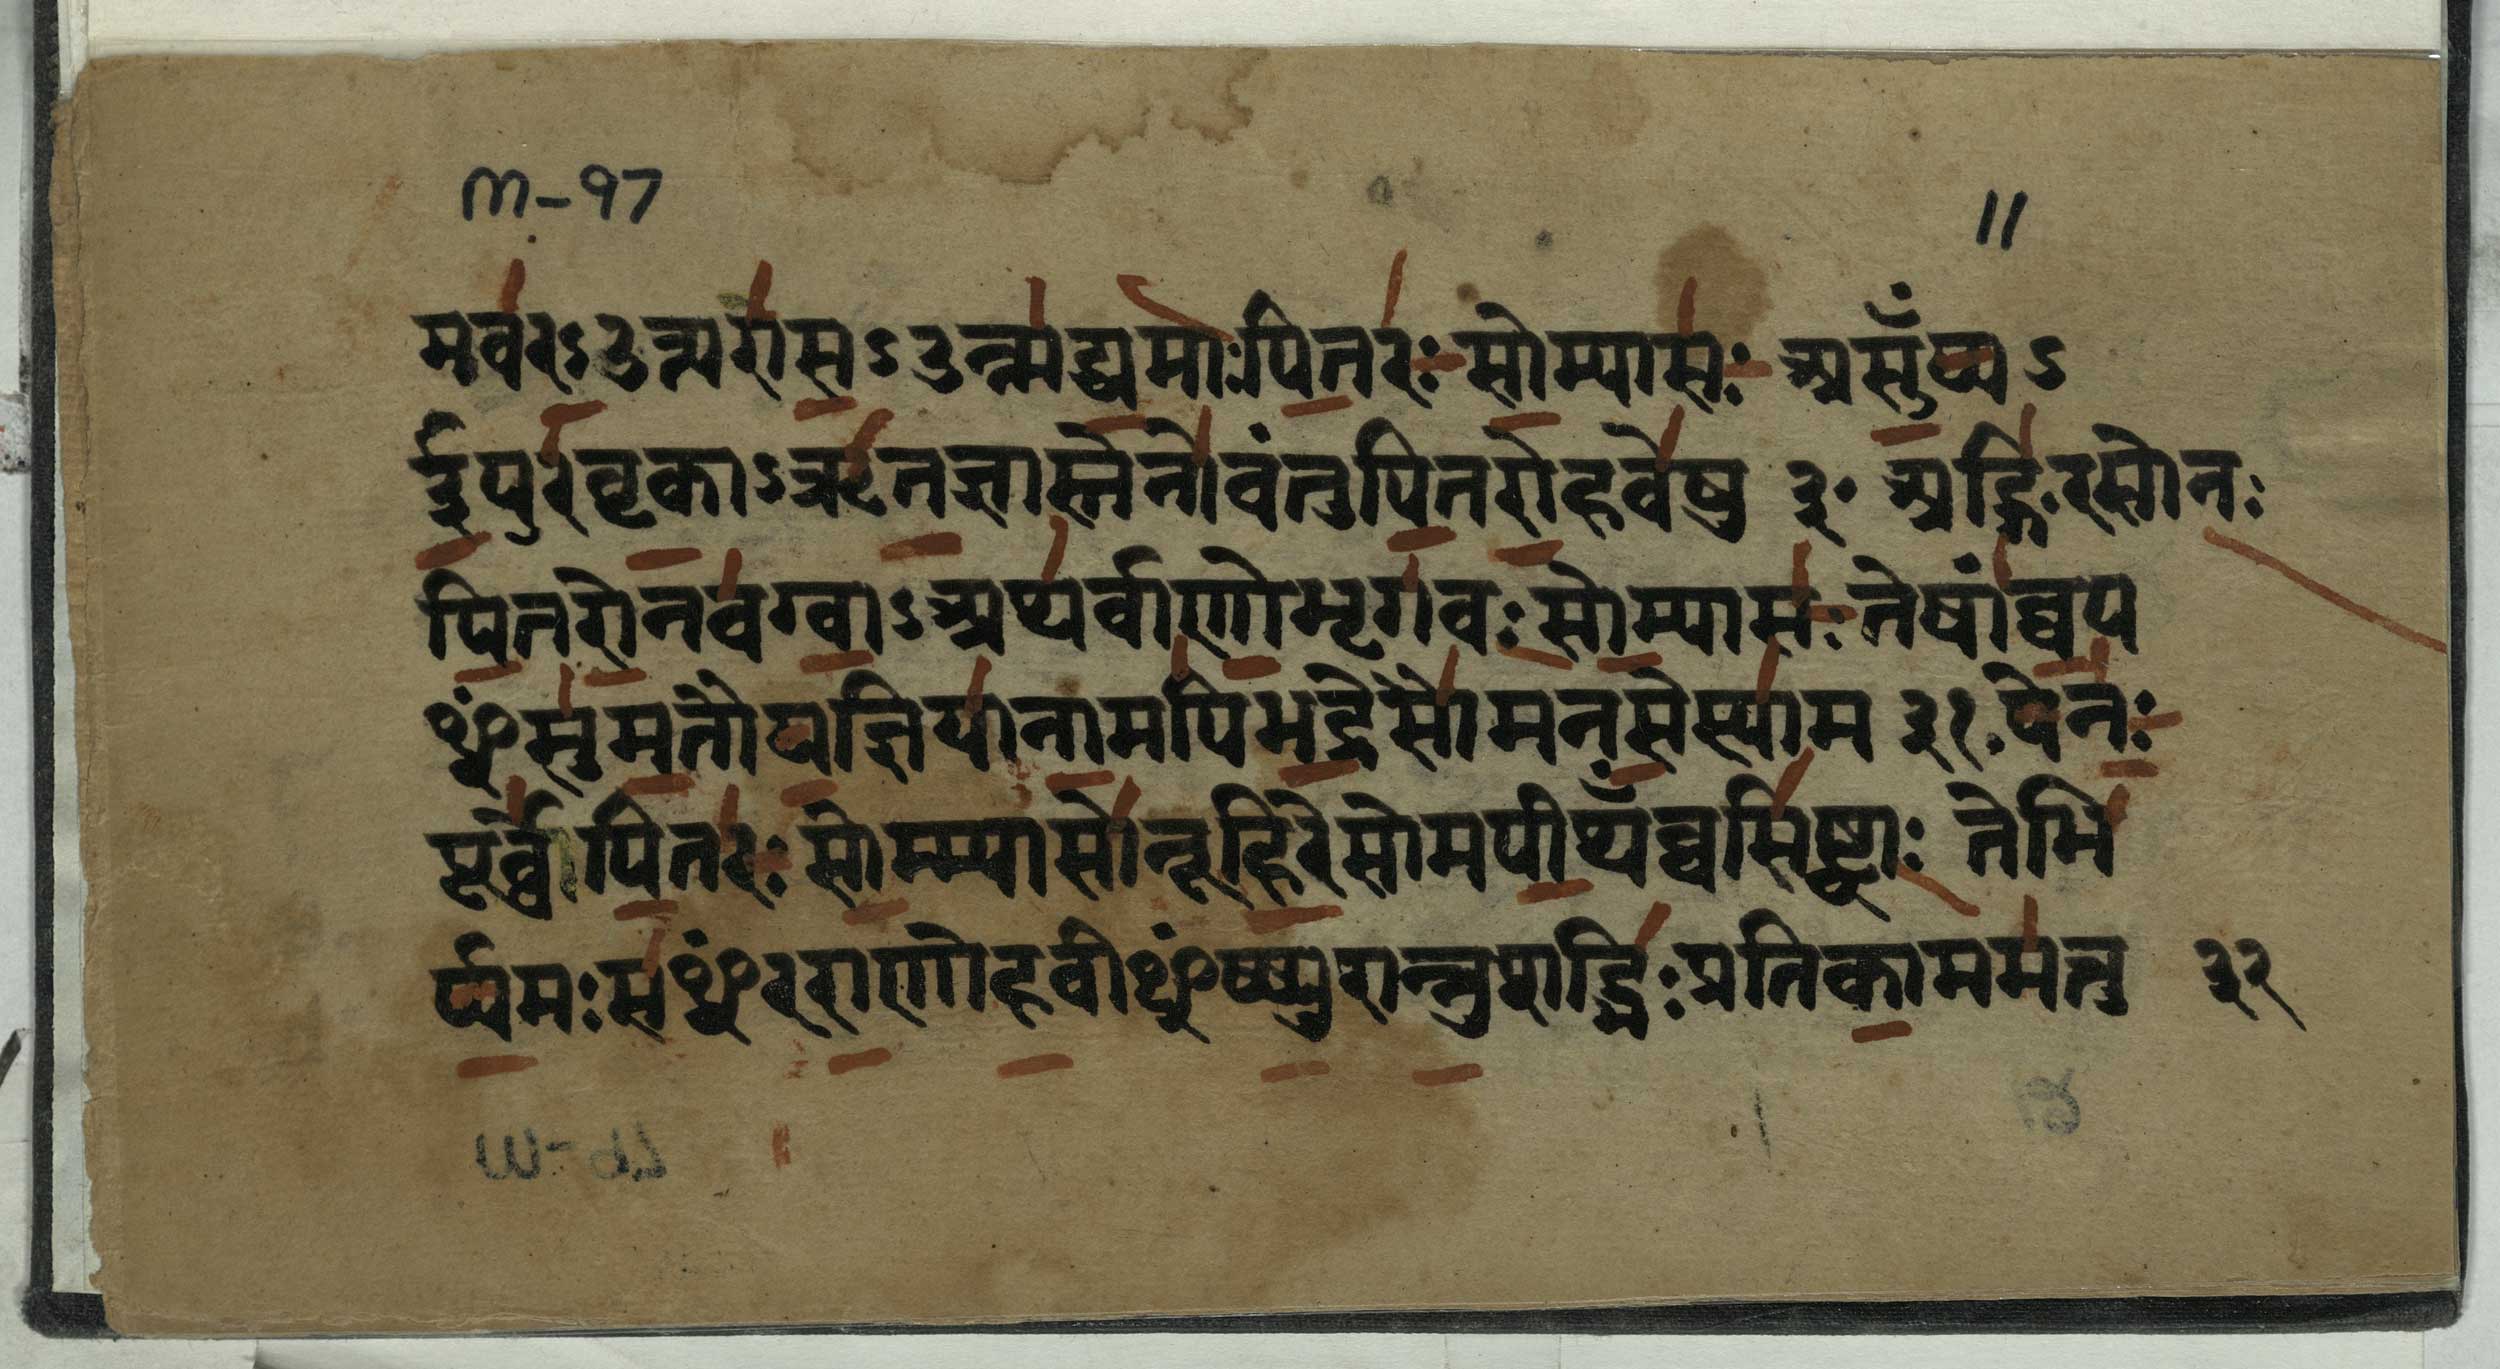 m-97
11
मवरऽउत्परासऽउन्मद्ध्यमाःपितरः सोम्यासः असुँय्यऽ
ईयुरवृकाऽऋतज्ञास्तेनोवंतुपितरोहवेषु ३० अङ्गिरसोनः
पितरोनवग्वाऽअथर्वाणोभृगवःसोम्यासः तेषांव्वय
ᳪसुमतौयज्ञियानामपिभद्रेसौमनसेस्याम ३१ येनः
पूर्व्वेपितरःसोम्म्यासोनूहिरेसोमपीथँव्वसिष्ठाः तेभि
र्य्यमःसᳪरराणोहवीᳪष्ष्युशन्नुशद्भिःप्रतिकाममत्तु ३२